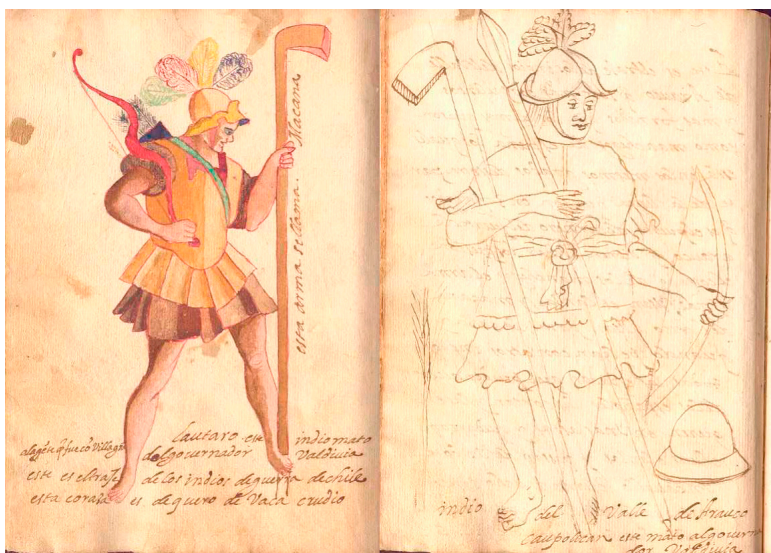 esta arma sellama. Macana
lautaro este indio mato
alagēte q̄ fue cō Villagrā del gouernador Valdiuia
este es el traje de los indios de guerra de chile
esta coraza es de quero de Vaca crudio
indio del Valle de Arauco
Caupolican este mato al gouerna
dor Valdiuia